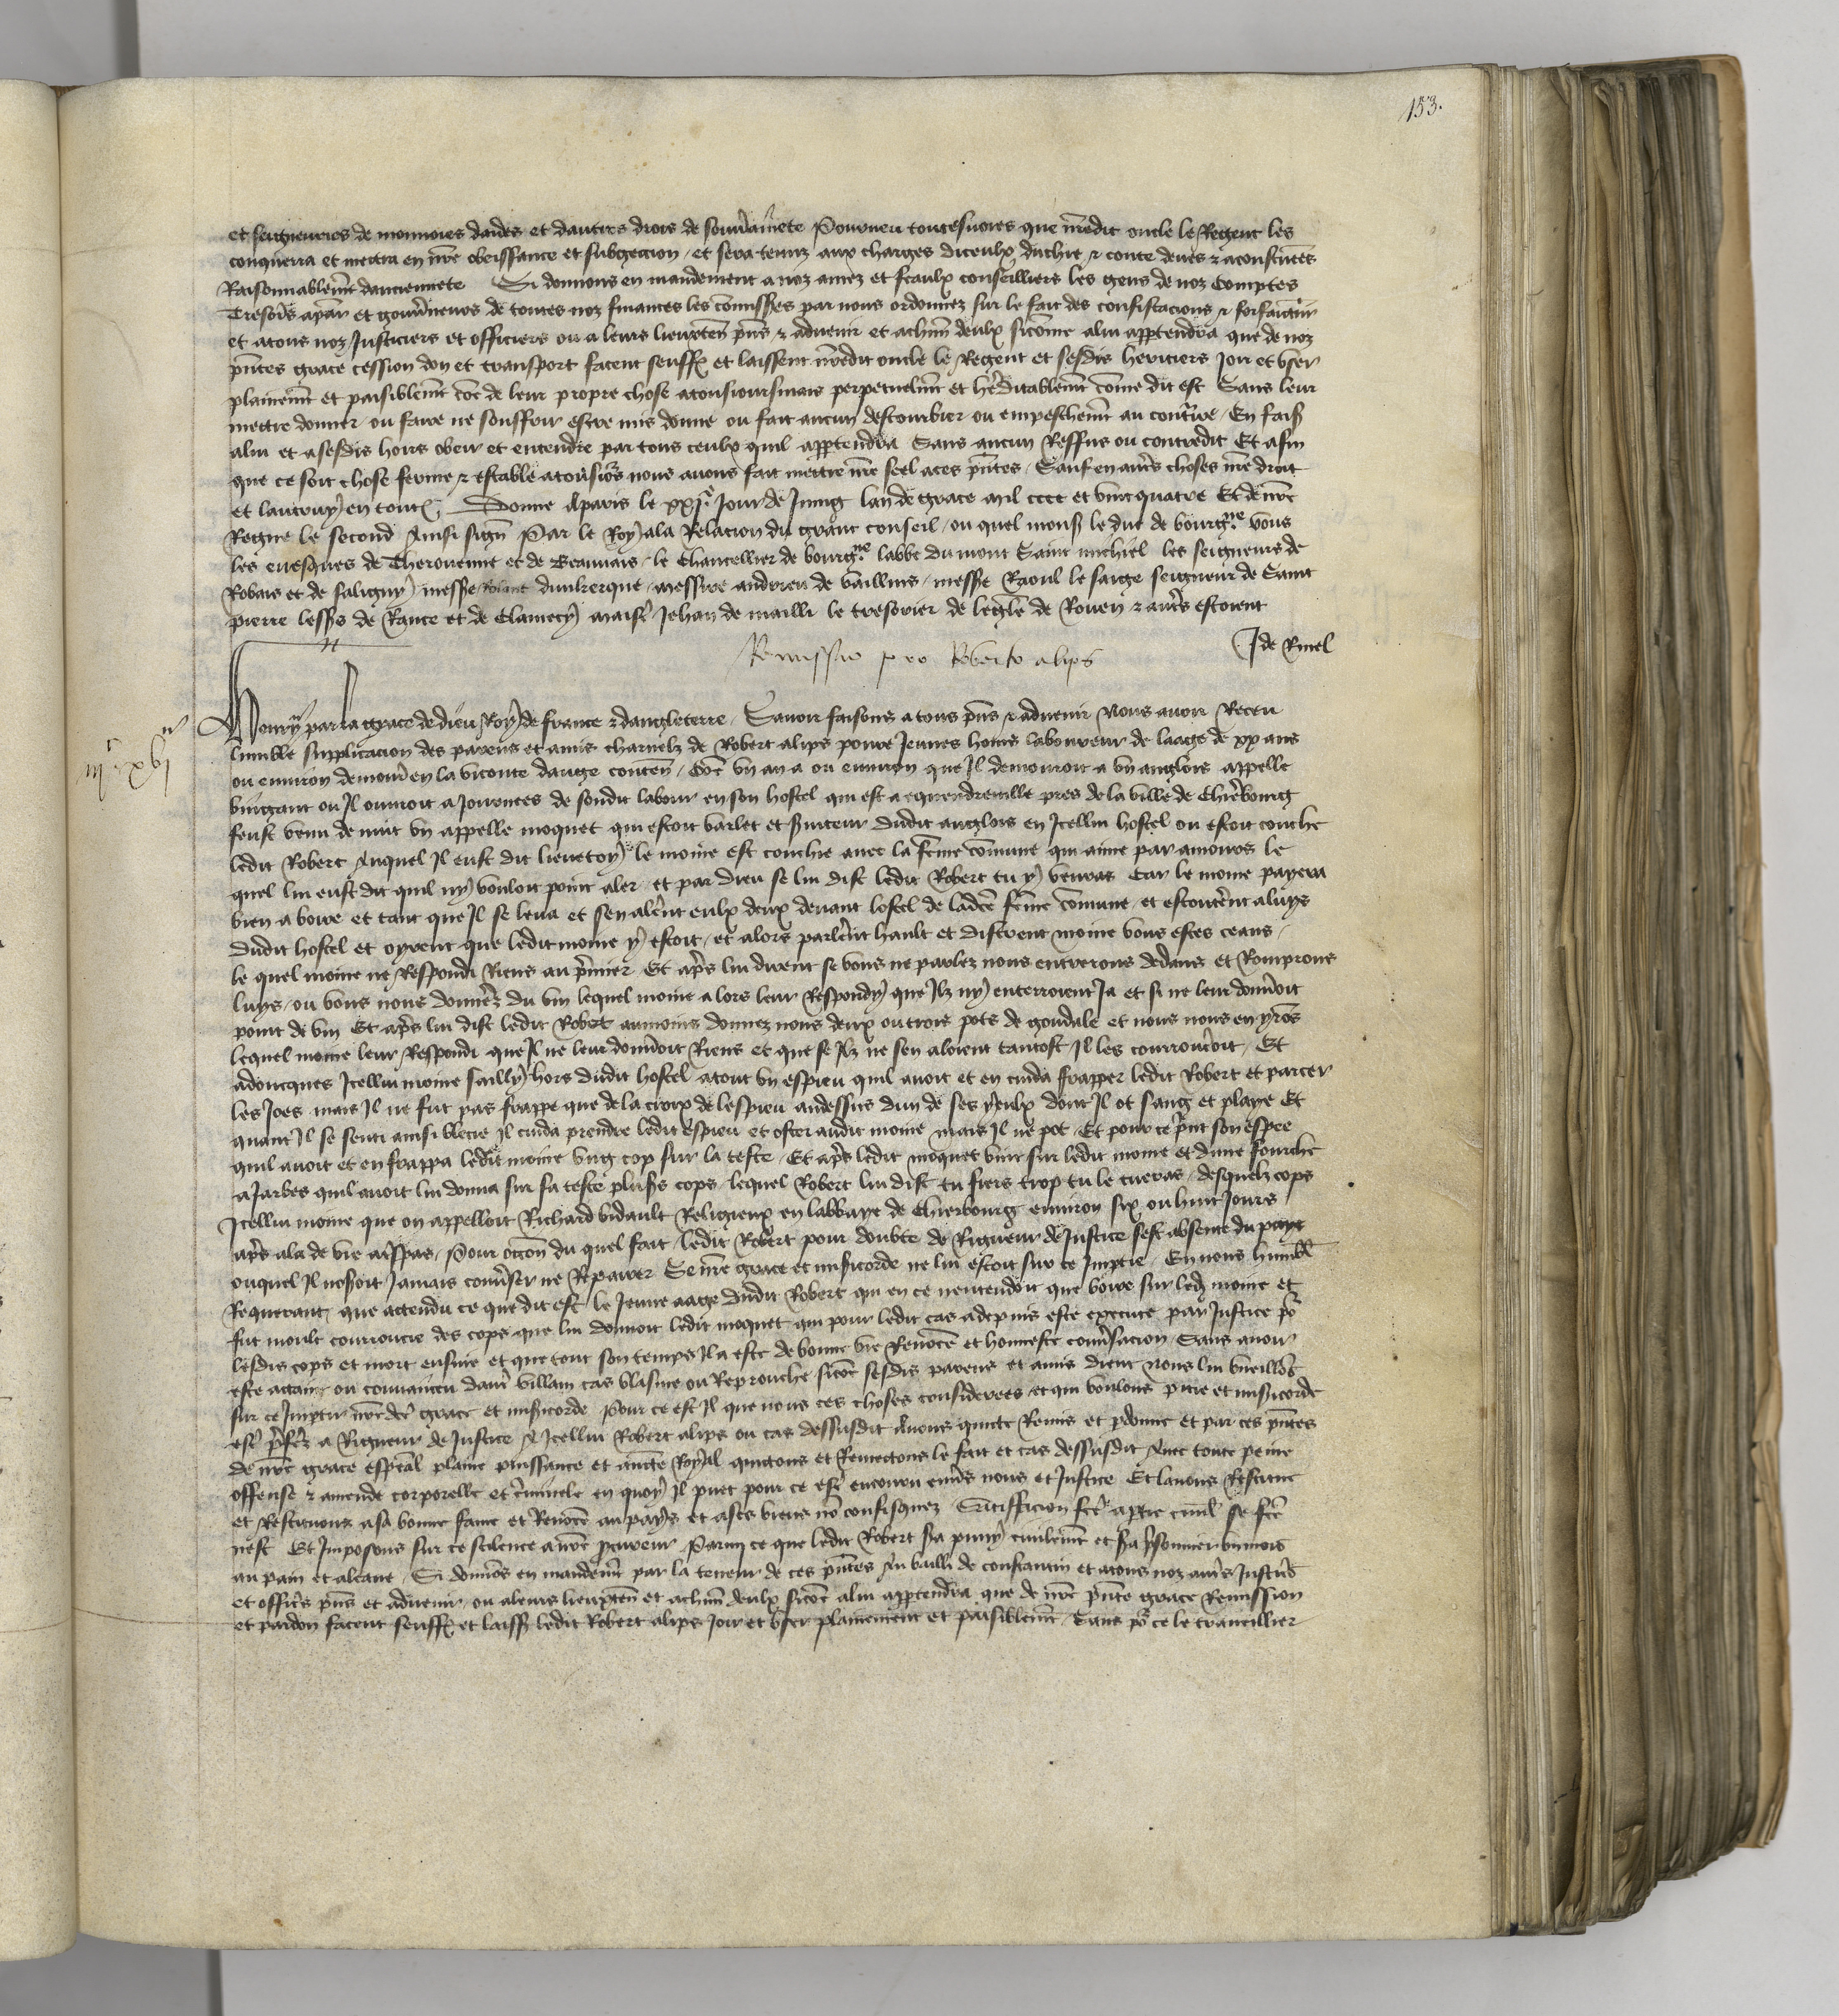 153.
et seigneuries de monnoies daides et dautres drois de souvrainnete Pourveu toutesvoies que nredit oncle le Regent les
conquerra et mettra en nre obeissance et subgeccion et sera tenuz aux charges diceulx duchie & conte deues & acoustumees
Raisonnablemt danciennete Si donnons en mandement a noz amez et feaulx conseilliers les gens de noz Comptes
Tresoriers et gouvneurs de toutes noz finances les commisses par nous ordonnez sur le fait des confiscacions & forfaitur
et a tous noz Justiciers et officiers ou a leurs lieuxten pns & advenir et a chun deulx si come a lui appartendra que de noz
pntes grace cession don et transport facent seuffr et laissent nredit oncle le Regent et sesdis heritiers Joir et user
plainemt et paisiblemt coe de leur propre chose a tousioursmais perpetuelmt et hereditablemt come dit est Sans leur
mettre donner ou faire ne souffrir estre mis donne ou fait aucun destourbier ou empeschemt au contrre En fais
a lui et a sesdis hoirs obeir et entendre par tous ceulx quil appartendra Sans aucun Reffus ou contredit Et afin
que ce soit chose ferme & estable a tousiors nous avons fait mettre nre seel a ces pntes Sauf en autres choses nre droit
et lautruy en toutes Donne a Paris le xxe Jour de Juing lan de grace mil cccc et vint quatre Et de nre
Regne le second Ainsi sign Par le Roy a la Relacion du grant conseil ou quel mons le duc de bourgne vous
les evesques de Therouenne et de Beauvais le Chancellier de bourgne labbe du mont Saint michiel les seigneurs de
Robais et de saligny messe dunkerque messire andrieu de vaillins messe Raoul le saige seigneur de Saint
pierre lesss de Rance et de Clamecy maist Jehan de mailli le tresorier de leglise de Rouen & autres estoient
J de Rinel
Remissio pro Roberto alips
Henry par la grace de dieu Roy de france & dangleterre Savoir faisons a tous pns & advenir Nous avoir Receu
lumble supplicacion des parens et amis charnelz de Robert alips povre Jeunes homs laboureur de laage de xx ans
ou environ demourt en la viconte dauge conten Coe un an a ou environ que Il demouroit a un anglois appelle
vingant ou Il ouvroit a Journees de sondit labour en son hostel qui est a equeurdreville pres de la ville de Chierebourg
feust venu de nuit un appelle moquet qui estoit varlet et serviteur dudit anglois en Icellui hostel ou estoit couche
ledit Robert Auquel Il eust dit lieve toy le moine est couchie avec la feme comune qui aime par amours le
quel lui eust dit quil ny vouloit point aler et par dieu se lui dist ledit Robert tu y venras Car le moine payera
bien a boire et tant que Il se leva et sen alerent eulx deux devant lostel de ladce feme comune et escouterent a luys
dudit hostel et oyrent que ledit moine y estoit et alors parlerent hault et disrent moine vous estes ceans
le quel moine ne Respondi Riens au prmier Et aprs lui dirent se vous ne parlez nous entrerons dedans et Romprons
luys ou vous nous donnez du vin lequel moine a lors leur Respondy que Ilz ny enterroient Ja et si ne leur donroit
point de vin Et aprs lui dist ledit Robert aumoins donnez nous deux ou trois pots de goudale et nous nous en yros
lequel moine leur Respondi que Il ne leur donroit Riens et que se Ilz ne sen aloient tantost Il les courrouceroit Et
adoncques Icellui moine sailly hors dudit hostel a tout un espieu quil avoit et en cuida frapper ledit Robert et parcer
les Joes mais Il ne fut pas frappe que de la croix de lespieu au dessus dun de ses yeulx dont Il ot sang et playe Et
quant Il se senti ainsi blecie Il cuida prendre ledit espieu et oster audit moine mais Il ne pot Et pour ce print son espee
quil avoit et en frappa ledit moine ung cop sur la teste Et aprs ledit moquet vint sur ledit moine et dune fourche
a Jarbes quil avoit lui donna sur sa teste plusrs cops lequel Robert lui dist tu fiers trop tu le tueras desquelz cops
Icellui moine que on appelloit Richard vidault Religieux en labbaye de Chierbourg environ six ou huit Jours
aprs ala de vie a trspas Pour occon du quel fait ledit Robert pour doubte de Rigueur de Justice sest absente du pays
ouquel Il noseroit Jamais converser ne Reparer Se nre grace et misicorde ne lui estoit sur ce Imptie En nous humbl
Requerant que attendu ce que dit est le Jeune aage dudit Robert qui en ce nentendoit que boire sur led moine et
fut moult courroucie des cops que lui donnoit ledit moquet qui pour ledit cas a depuis este execute par Justice por
lesdis cops et mort ensuie et que tout son temps Il a este de bonne vie Renomee et honneste conversacion Sans avoir
este attaint ou convaincu dautre villain cas blasme ou Reprouche sicoe sesdis parens et amis dient Nous lui vueillons
sur ce Imptir nredce grace et misicorde Pour ce est Il que nous ces choses considerees et qui voulons pitie et misicorde
est prferez a Rigueur de Justice A Icellui Robert alips ou cas dessusdit Avons quicte Remis et pdonne et par ces pntes
de nre grace espcial plaine puissance et auctte Royal quictons et Remectons le fait et cas dessusdit Avec toute peine
offense & amende corporelle et criminele en quoy Il puet pour ce estre encouru envrs nous et Justice Et lavons Restitue
et Restituons a sa bonne fame et Renomee au pays et a ses biens no confisquez Satisfficion fce a ptie civil se fce
nest Et Imposons sur ce scilence a nre pcureur Parmy ce que ledit Robert sa puny civilemt et sa prsonnier un mois
au pain et a leaue Si donnos en mandemt par la teneur de ces pntes Au bailli de constantin et a tous noz autres Justicrs
et officrs pns et advenir ou a leurs lieuxten et a chun deulx sicoe a lui appartendra que de nre pnte grace Remission
et pardon facent seuffr et laissr ledit Robert alips Joir et user plainement et paisiblemt Sans por ce le traveillier